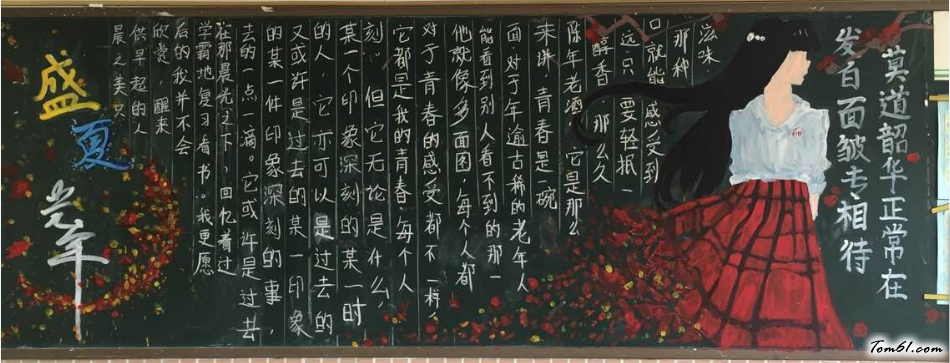 盛夏光年
晨之美只
供早起的人
欣赏，醒来
后的我并不会
学霸地复习看书。我更愿
在那晨光之下，回忆着过
去的一点一滴。它或许是过去
的某一件印象深刻的事，
又或许是过去的某一印象
的人，它亦可以是过去的
某一个印象深刻的某一时
刻．但它无论是什么
它都是我的青春，每个人
对于青春的感受都不一样，
他就像多面图，每个人都
能看到别人看不到的那一
面．对于年逾古稀的老年人
来讲，青春是一碗
陈年老酒，它是那么
醇香 那么久
远 只要轻抿一
口就能感受到
那种
滋味
莫道韶华正常在
发白面皱专相待
Tom61.com